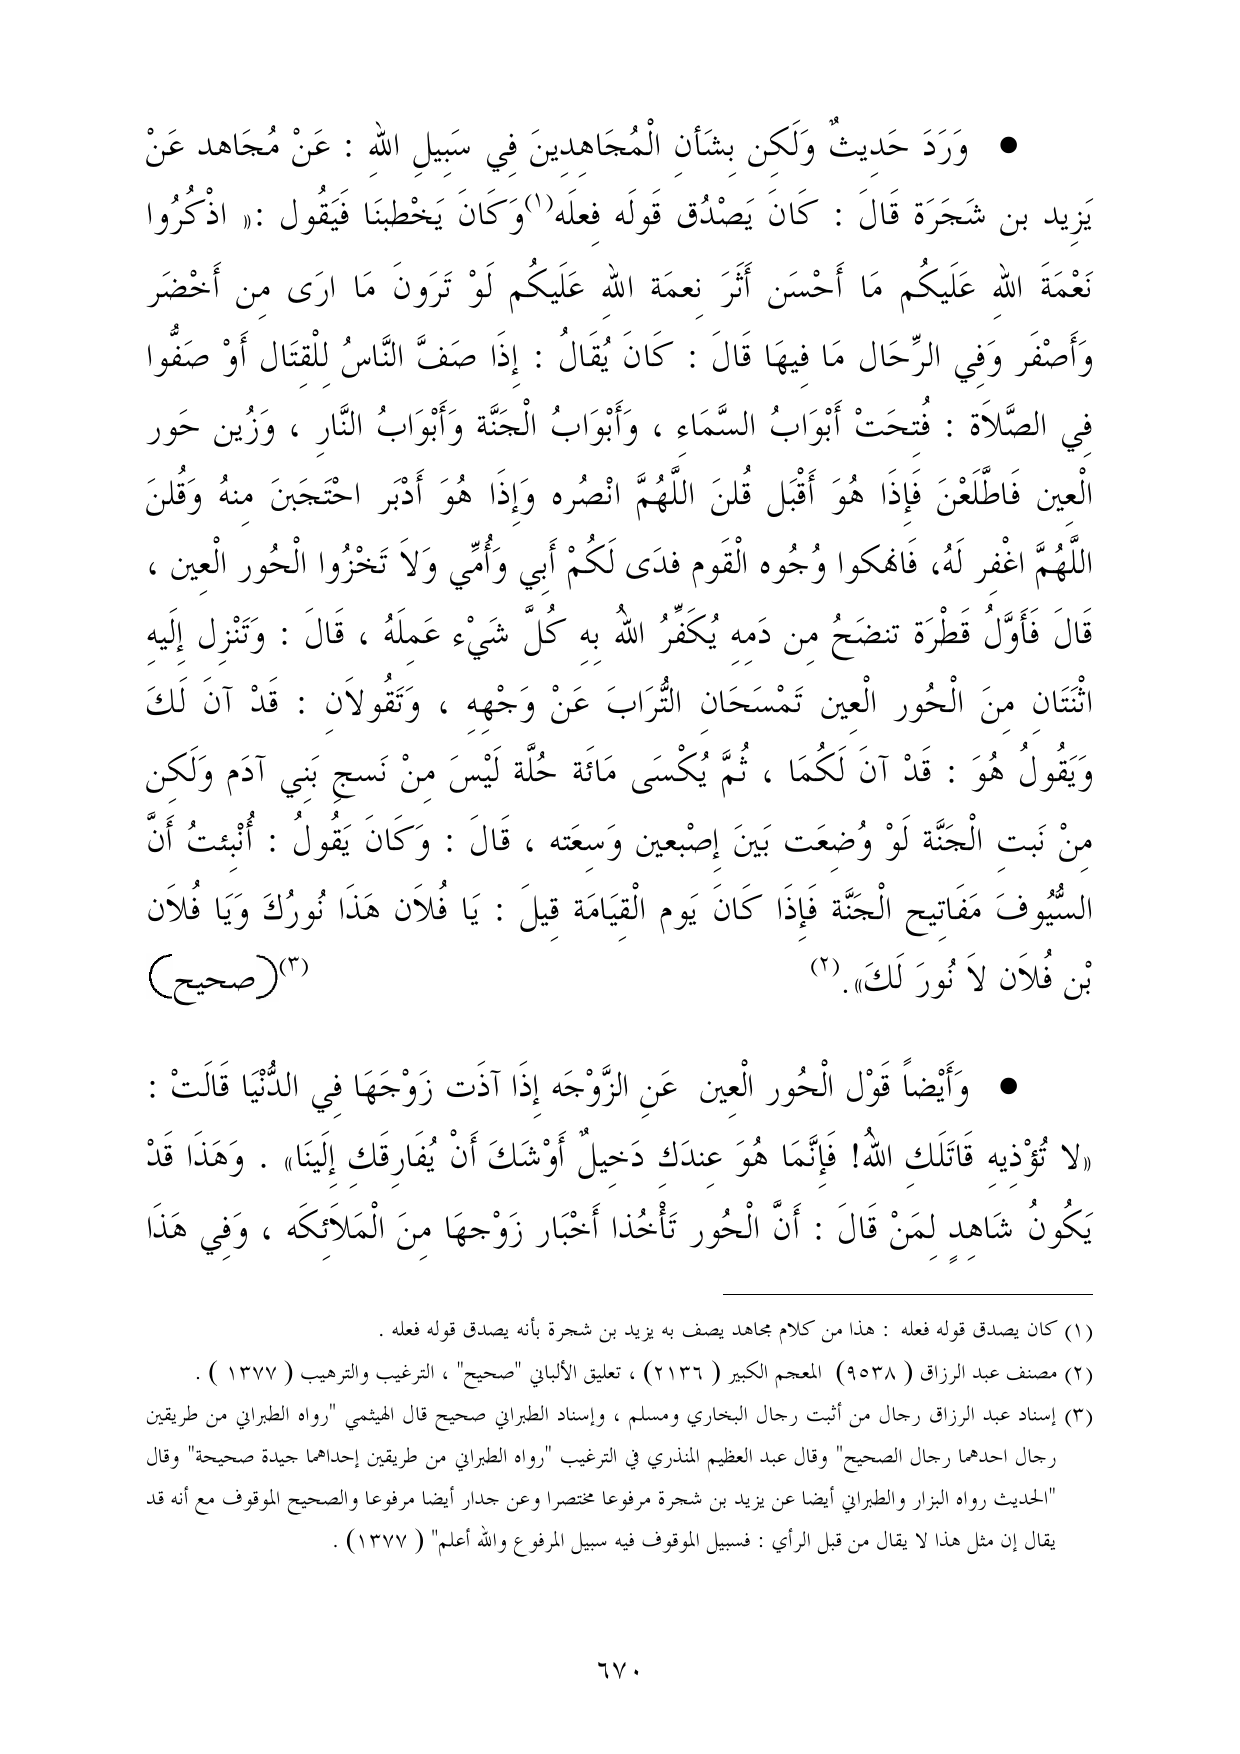 ● وَرَدَ حَدِيثٌ وَلَكِن بِشَأنِ الْمُجَاهِدِينَ فِي سَبِيلِ اللهِ : عَنْ مُجَاهد عَنْ
يَزِيد بن شَجَرَة قَالَ : كَانَ يَصْدُق قَولَه فِعلَه(١)وَكَانَ يَخْطبنَا فَيَقُول :« اذْكُرُوا
نَعْمَةَ اللهِ عَلَيكُم مَا أَحْسَن أَثَرَ نِعمَة اللهِ عَلَيكُم لَوْ تَرَونَ مَا ارَى مِن أَخْضَر
وَأَصْفَر وَفِي الرِّحَال مَا فِيهَا قَالَ : كَانَ يُقَالُ : إِذَا صَفَّ النَّاسُ لِلْقِتَال أَوْ صَفُّوا
فِي الصَّلاَة : فُتِحَتْ أَبْوَابُ السَّمَاءِ ، وَأَبْوَابُ الْجَنَّة وَأَبْوَابُ النَّارِ ، وَزُين حَور
الْعِين فَاطَّلَعْنَ فَإِذَا هُوَ أَقْبَل قُلنَ اللَّهُمَّ انْصُره وَإِذَا هُوَ أَدْبَر احْتَجَبنَ مِنهُ وَقُلنَ
اللَّهُمَّ اغْفِر لَهُ، فَانهكوا وُجُوه الْقَوم فدَى لَكُمْ أَبي وَأُمِّي وَلاَ تَخْزُوا الْحُور الْعِين ،
قَالَ فَأَوَّلُ قَطْرَة تنضَحُ مِن دَمِهِ يُكَفِّرُ اللهُ بِهِ كُلَّ شَيْء عَمِلَهُ ، قَالَ : وَتَنْزِل إِلَيهِ
اثْنَتَانِ مِنَ الْحُور الْعِين تَمْسَحَانِ التُّرَابَ عَنْ وَجْهِهِ ، وَتَقُولاَنِ : قَدْ آنَ لَكَ
وَيَقُولُ هُوَ : قَدْ آنَ لَكُمَا ، ثُمَّ يُكْسَى مَائَة حُلَّة لَيْسَ مِنْ نَسجِ بَنِي آدَم وَلَكِن
مِنْ نَبتِ الْجَنَّة لَوْ وُضِعَت بَينَ إِصْبعين وَسِعَته ، قَالَ : وَكَانَ يَقُولُ : أُنْبِئتُ أَنَّ
السُّيُوفَ مَفَاتِيح الْجَنَّة فَإِذَا كَانَ يَوم الْقِيَامَة قِيلَ : يَا فُلاَن هَذَا نُورُكَ وَيَا فُلاَن
بْن فُلاَن لاَ نُورَ لَكَ».(٢) (٣)(صحيح)
● وَأَيْضاً قَوْل الْحُور الْعِين عَنِ الزَّوْجَه إِذَا آذَت زَوْجَهَا فِي الدُّنْيَا قَالَتْ :
«لا تُؤْذِيهِ قَاتَلَكِ اللهُ! فَإِنَّمَا هُوَ عِندَكِ دَخِيلٌ أَوْشَكَ أَنْ يُفَارِقَكِ إِلَينَا» . وَهَذَا قَدْ
يَكُونُ شَاهِدٍ لِمَنْ قَالَ : أَنَّ الْحُور تَأْخُذا أَخْبَار زَوْجهَا مِنَ الْمَلاَئِكَه ، وَفِي هَذَا
(١) كان يصدق قوله فعله : هذا من كلام مجاهد يصف به يزيد بن شجرة بأنه يصدق قوله فعله .
(٢) مصنف عبد الرزاق ( ٩٥٣٨) المعجم الكبير ( ٢١٣٦) ، تعليق الألباني "صحيح" ، الترغيب والترهيب ( ١٣٧٧ ) .
(٣) إسناد عبد الرزاق رجال من أثبت رجال البخاري ومسلم ، وإسناد الطبراني صحيح قال الهيثمي "رواه الطبراني من طريقين
رجال احدهما رجال الصحيح" وقال عبد العظيم المنذري في الترغيب "رواه الطبراني من طريقين إحداهما جيدة صحيحة" وقال
"الحديث رواه البزار والطبراني أيضا عن يزيد بن شجرة مرفوعا مختصرا وعن جدار أيضا مرفوعا والصحيح الموقوف مع أنه قد
يقال إن مثل هذا لا يقال من قبل الرأي : فسبيل الموقوف فيه سبيل المرفوع والله أعلم" ( ١٣٧٧) .
٦٧٠